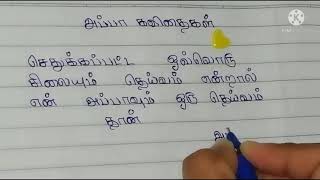 அப்பா கவிதைகள்
செதுக்கப்பட்ட ஒவ்வொரு
சிலையும் தெய்வம் என்றால்
என் அப்பாவும் ஒரு தெய்வம்
தான்